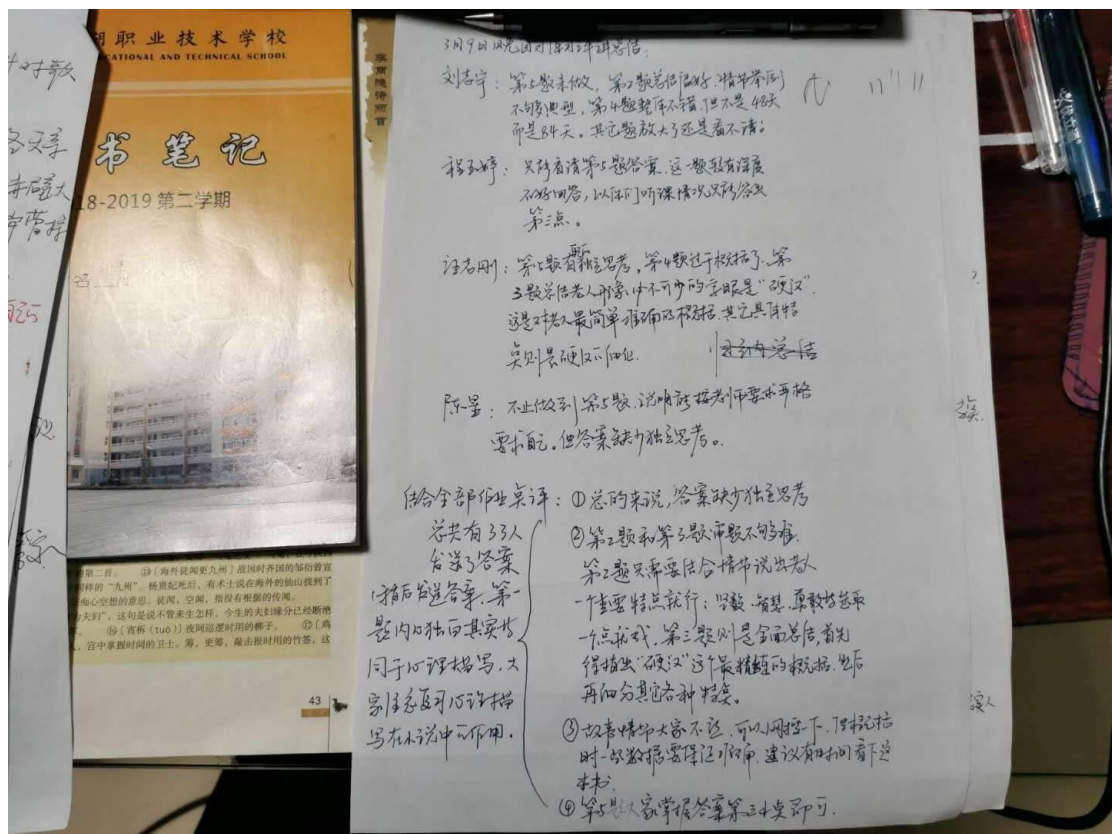 期职业技术学校
CATIONAL AND TECHNICAL SCHOOL
书笔记
18-2019 第二学期
李商隐诗两首
的第二首。 ⑬〔海外徒闻更九州〕战国时齐国的邹衍曾宣
同样的“九州”。杨贵妃死后,有术士说在海外的仙山找到了
痴心空想的意思。徒闻,空闻,指没有根据的传闻。
为夫妇”,这句是说不管来生怎样,今生的夫妇缘分已经断绝
⑯〔宵柝(tuò)〕夜间巡逻时用的梆子。 ⑰〔鸡
,宫中掌握时间的卫士。筹,更筹,敲击报时用的竹签,这
43
刘志宇:第5题未做,第2题总结很好,情节举例
不够典型,第4题整体不错,但不是48天
而是84天。其它题放大了还是看不清。
程玉婷:只能看清第5题答案,这一题较有深度
不好回答,以你们听课情况只能答出
第三点。
汪志刚:第5题有独立思考,第4题过于概括了,第
3题总结老人形象,必不可少的字眼是“硬汉”
这是对老人最简单准确的概括,其它具体特
点则是硬汉的细化.
陈星:不止做到第5题,说明能按老师要求严格
要求自己。但答案缺少独立思考。
结合全部作业点评:
总共有33人
发送了答案
稍后发送答案,第一
题内心独白其实等
同于心理描写,大
家注意复习心理描
写在小说中的作用.
①总的来说,答案缺少独立思考
②第2题和第3题审题不够准,
第2题只需要结合情节说出老人
一个重要特点就行:坚毅、智慧、勇敢等选取
一个点就成,第三题则是全面总结,首先
得指出“硬汉”这个最精鍊的概括,然后
再细分其它各种特点。
③故事情节大家不熟,可以网搜一下,但概括
时一些数据要保证准确,建议有时间看下这
本书.
④第5题大家掌握答案第三小点即可.